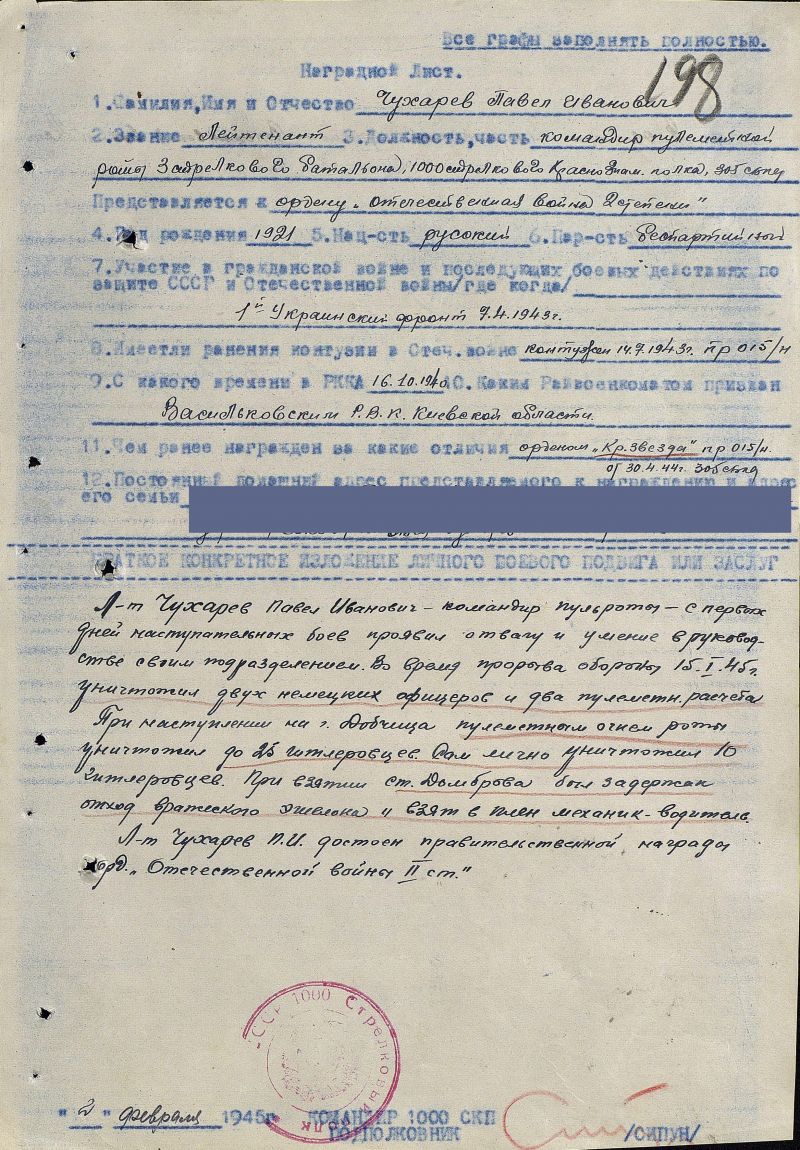 Все графы заполнять полностью.
198
Наградной Лист.
1. Фамилия, Имя и Отчество Чухарев Павел Иванович
2. Звание Лейтенант 3. Должность, часть командир пулеметной
роты 3 стрелкового батальона, 1000 стрелкового Краснознам. полка, 305
Представляется к ордену „Отечественная война 2 степени"
4. Год рождения 1921 5. Нац-сть русский 6. Пар-сть беспартийный
7. Участие в гражданской войне и последующих боевых действиях по
защите СССР и Отечественной войны /где когда/
1й Украинский фронт 7.4.1943г.
8. Имеетли ранения контузии в Отеч. войне контужен 14.7.1943г. пр 015/н
9. С какого времени в РККА 16.10.1940 10. Каким Райвоенкоматом призван
Васильковским Р.В.К. Киевской области.
11. Чем ранее награжден за какие отличия орденом „Кр. Звезда" пр 015/н.
от 30.4.44г. 305
12. Постоянный домашний адрес представляемого к награждению и адрес
его семьи
КРАТКОЕ КОНКРЕТНОЕ ИЗЛОЖЕНИЕ ЛИЧНОГО БОЕВОГО ПОДВИГА ИЛИ ЗАСЛУГ
Л-т Чухарев Павел Иванович – командир пульроты – с первых
дней наступательных боев проявил отвагу и умение в руковод-
стве своим подразделением. Во время прорыва обороны 15.I.45г.
уничтожил двух немецких офицеров и два пулеметн. расчета
При наступлении на г. Добчица пулеметным огнем роты
уничтожил до 25 гитлеровцев. Сам лично уничтожил 10
гитлеровцев. При взятии ст. Домброва был задержан
отход вражеского эшелона и взят в плен механик-водитель.
Л-т Чухарев П.И. достоен правительственной награды
орд. „Отечественной войны II ст."
СССР 1000 Стрелковый полк
"2" февраля 1945г КОМАНДИР 1000 СКП
ПОДПОЛКОВНИК /СИПУН/